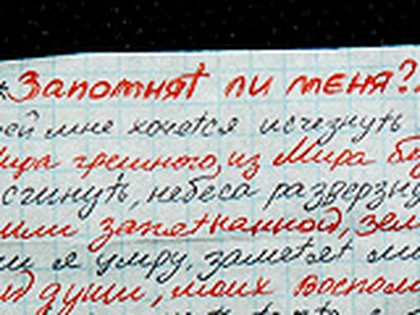 Запомнят ли меня?
ей мне хочется исчезнуть
мира грешного, из Мира
сгинуть, небеса разверзну
запятнанной, зем
я умру, заметят
души, моих воспом